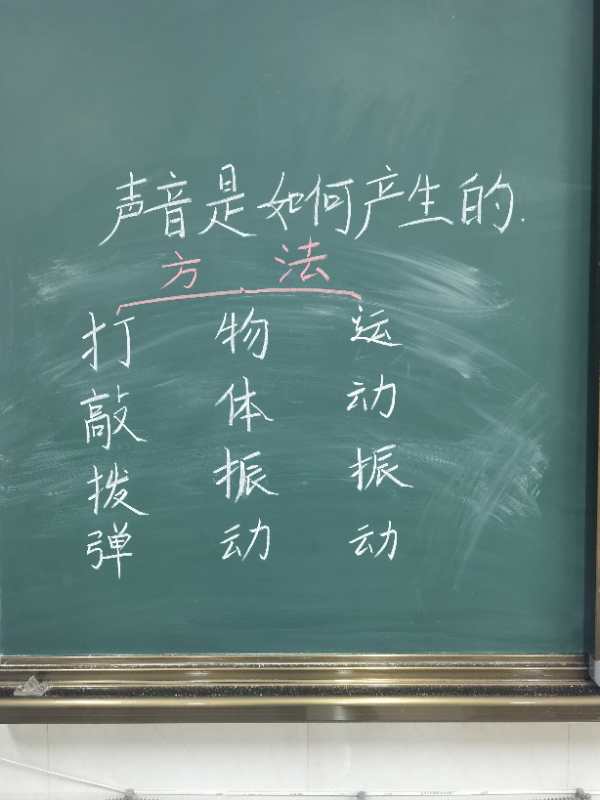 声音是如何产生的.
方法
打 物 运
敲 体 动
拨 振 振
弹 动 动